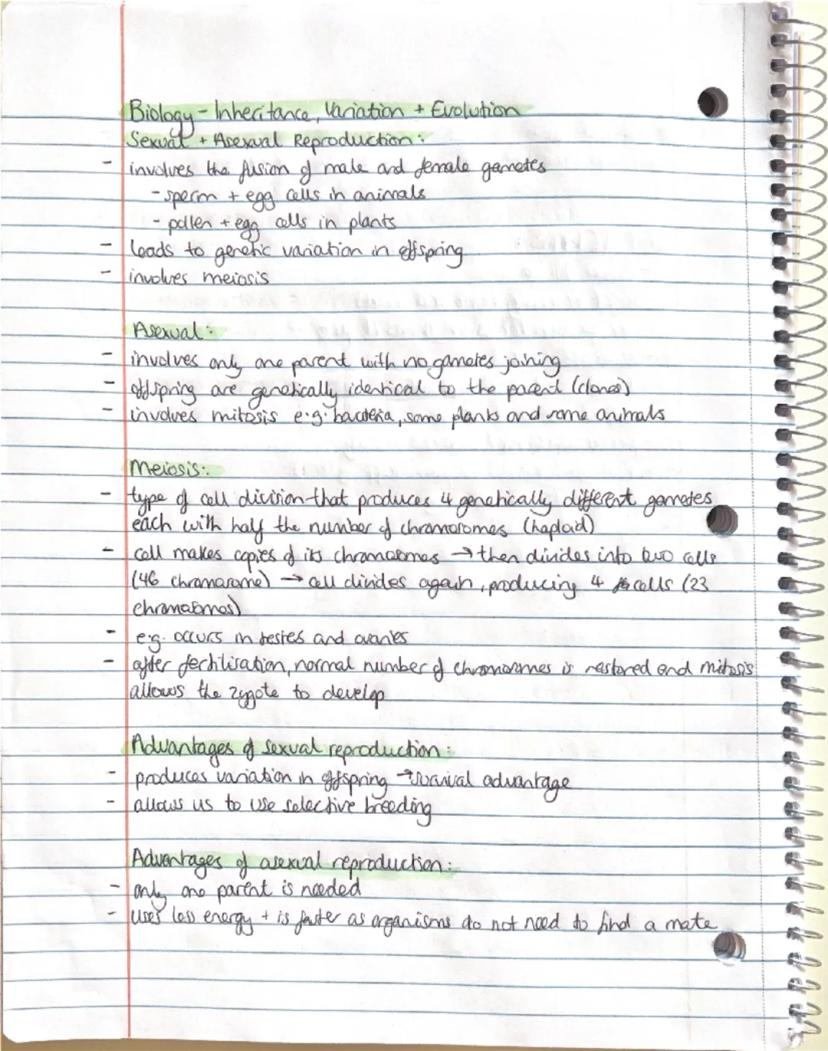 Biology - Inheritance, Variation + Evolution
Sexual + Asexual Reproduction:
- involves the fusion of male and female gametes
- sperm + egg cells in animals
- pollen + egg cells in plants
- leads to genetic variation in offspring
- involves meiosis
Asexual:
- involves only one parent with no gametes joining
- offspring are genetically identical to the parent (clones)
- involves mitosis e.g. bacteria, some plants and some animals
Meiosis:
- type of cell division that produces 4 genetically different gametes
each with half the number of chromosomes (haploid)
- cell makes copies of its chromosomes → then divides into two cells
(46 chromosome) → cell divides again, producing 4 cells (23
chromosomes)
- e.g. occurs in testes and ovaries
- after fertilisation, normal number of chromosomes is restored and mitosis
allows the zygote to develop
Advantages of sexual reproduction:
- produces variation in offspring → survival advantage
- allows us to use selective breeding
Advantages of asexual reproduction:
- only one parent is needed
- uses less energy + is faster as organisms do not need to find a mate